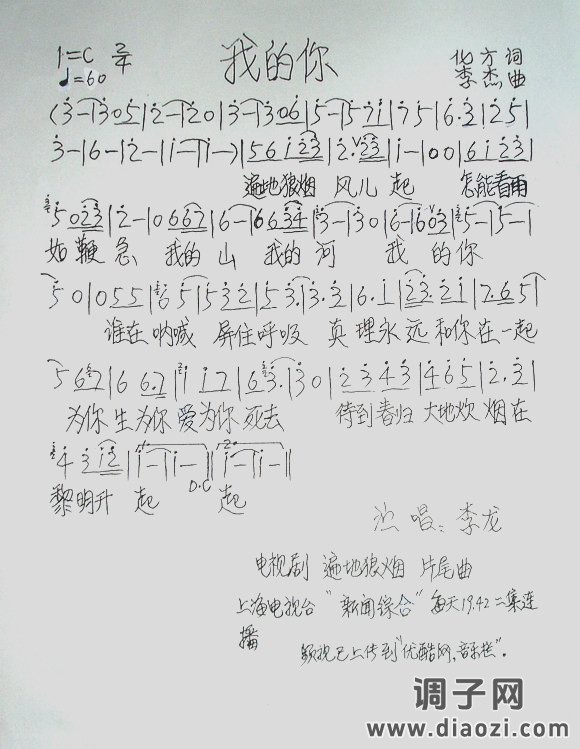 1=C 2/4
♩=60
我的你
化方 词
李杰 曲
(3-|305|2-|20|3-|306|5-|571|75|6·3|25|
3-|6-|2-|1-|1-)|56123|2·23|1-|00|6123|
遍地狼烟 风儿 起 怎能看雨
5023|2-|0667|6-|6634|3-|30|6-|603|5-|5-|
如鞭急 我的山 我的河 我 的你
50|055|65|532|53·|3·3|6·1|23·21|7·65|
谁在呐喊 屏住呼吸 真理永远和你在一起
567|66·7|117|63·|30|2343|465|2·3|
为你生为你爱为你死去 待到春归大地炊烟在
4312|1-|1-|1-|1-||
D.C
黎明升 起 起
演唱:李龙
电视剧 遍地狼烟 片尾曲
上海电视台"新闻综合"每天19.42二集连
播
频视已上传到"优酷网,音乐栏".
调子网
www.diaozi.com